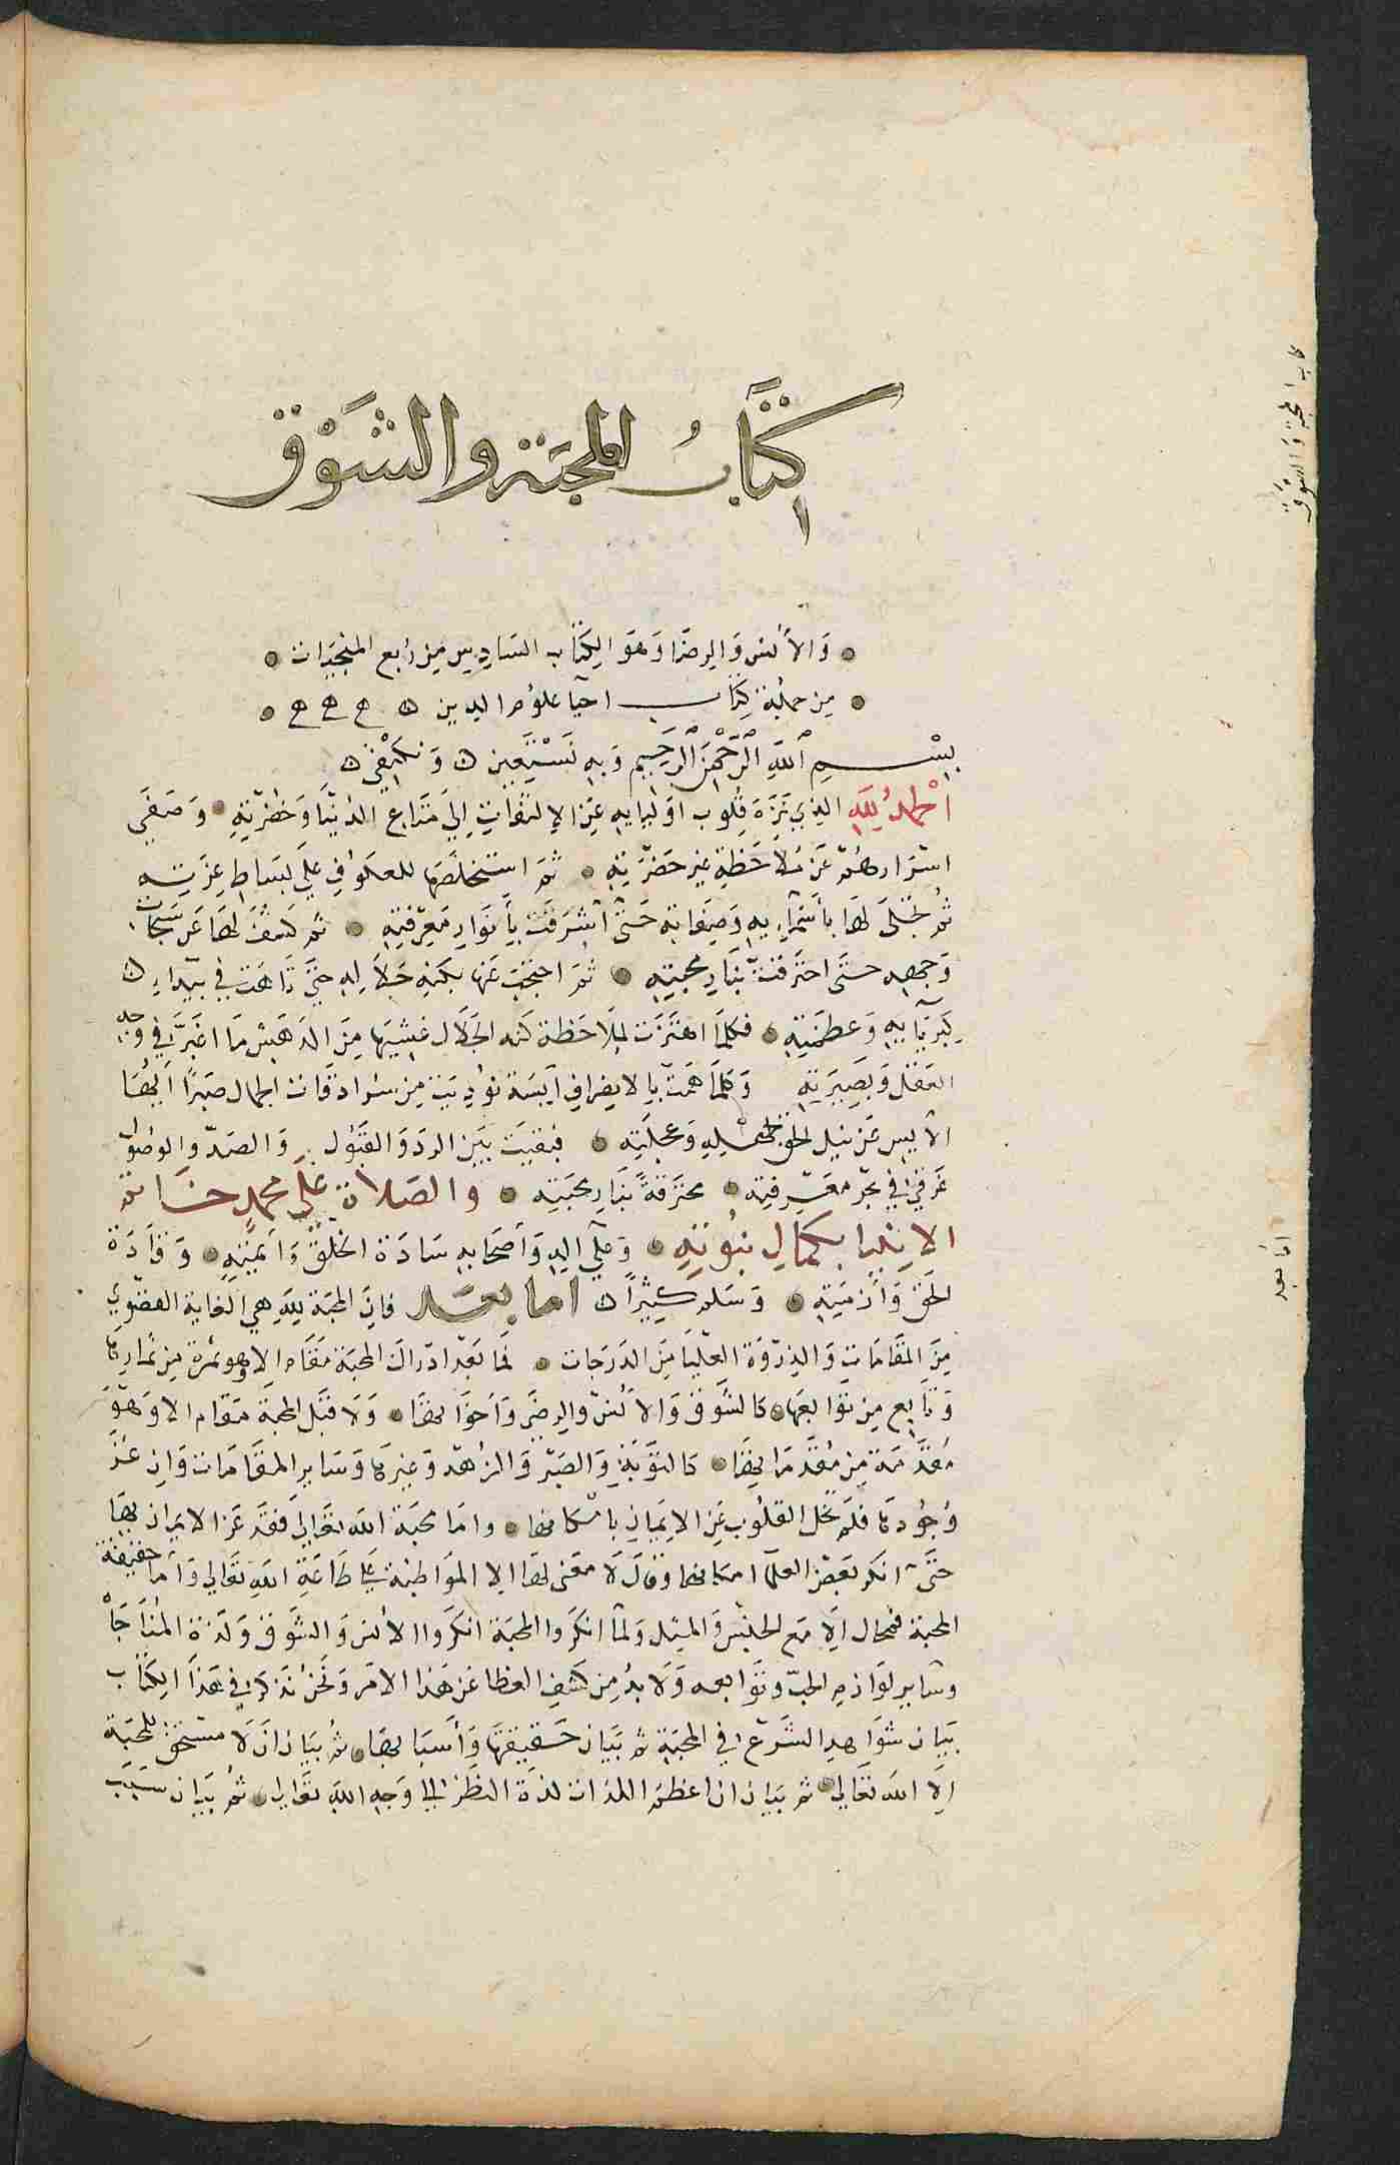 كتاب المحبة والشوق
والأنس والرضا وهو الكتاب السادس من رابع المنجيات
من جملة كتاب احيا علوم الدين
بسم الله الرحمن الرحيم وبه نستعين ونكتفي
الحمد لله الذي نزه قلوب اوليايه عن الإلتفات إلى متاع الدنيا وخضرته وصفى
اسرارهم عن ملاحظة غير حضرته ثم استخلصها للعكوف على بساط عزته
ثم تجلى لها بأسمآيه وصفاته حتى أشرقت بأنوار معرفته ثم كشف لها عن سبحات
وجهه حتى احترقت بنار محبته ثم احتجب عنها بكنه جلاله حتى تاهت في بيداء
كبريآيه وعظمته فكلما اهتزت لملاحظة كنه الجلال غشيها من الدهش ما اغبر في وجه
العقل وبصيرته وكلما همت بالانصراف آيسة نوديت من سرادقات الجمال صبرًا أيها
الآيس عن نيل الحق بجهله وعجلته فبقيت بين الرد والقبول والصد والوصول
غرقى في بحر معرفته محترقةً بنار محبته والصلاة على محمد خاتم
الانبيا بكمال نبوته وعلى اله وأصحابه سادة الخلق وأيمته وقادة
الحق وأزمته وسلم كثيرًا اما بعد فإن المحبة لله هي الغاية القصوى
من المقامات والذروة العليا من الدرجات فما بعد ادراك المحبة مقام الا وهو ثمرة من ثمارها
وتابع من توابعها كالشوق والأنس والرضى وأخواتها ولا قبل المحبة مقام الا وهو
مقدمة من مقدماتها كالتوبة والصبر والزهد وغيرها وساير المقامات وان عز
وجودها فلم تخل القلوب عن الإيمان بامكانها واما محبة الله تعالى فقد عز الايمان بها
حتى انكر بعض العلما امكانها وقال لا معنى لها الا المواظبة على طاعة الله تعالى وأما حقيقة
المحبة فمحال إلا مع الجنس والمثل ولما انكروا المحبة انكروا الأنس والشوق ولذة المناجاة
وساير لوازم الحب وتوابعه ولا بد من كشف الغطا عن هذا الامر ونحن نذكر في هذا الكتاب
بيان شواهد الشرع في المحبة ثم بيان حقيقتها وأسبابها ثم بيان أن لا مستحق للمحبة
إلا الله تعالى ثم بيان ان اعظم اللذات لذة النظر إلى وجه الله تعالى ثم بيان سبب
كتاب المحبة والشوق
اما بعد